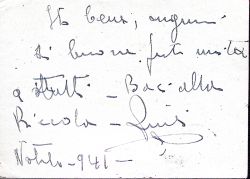 Sto bene, auguri
di buone feste natal
a tutti - Baci alla
Piccola - Luigi
Natale - 941 -